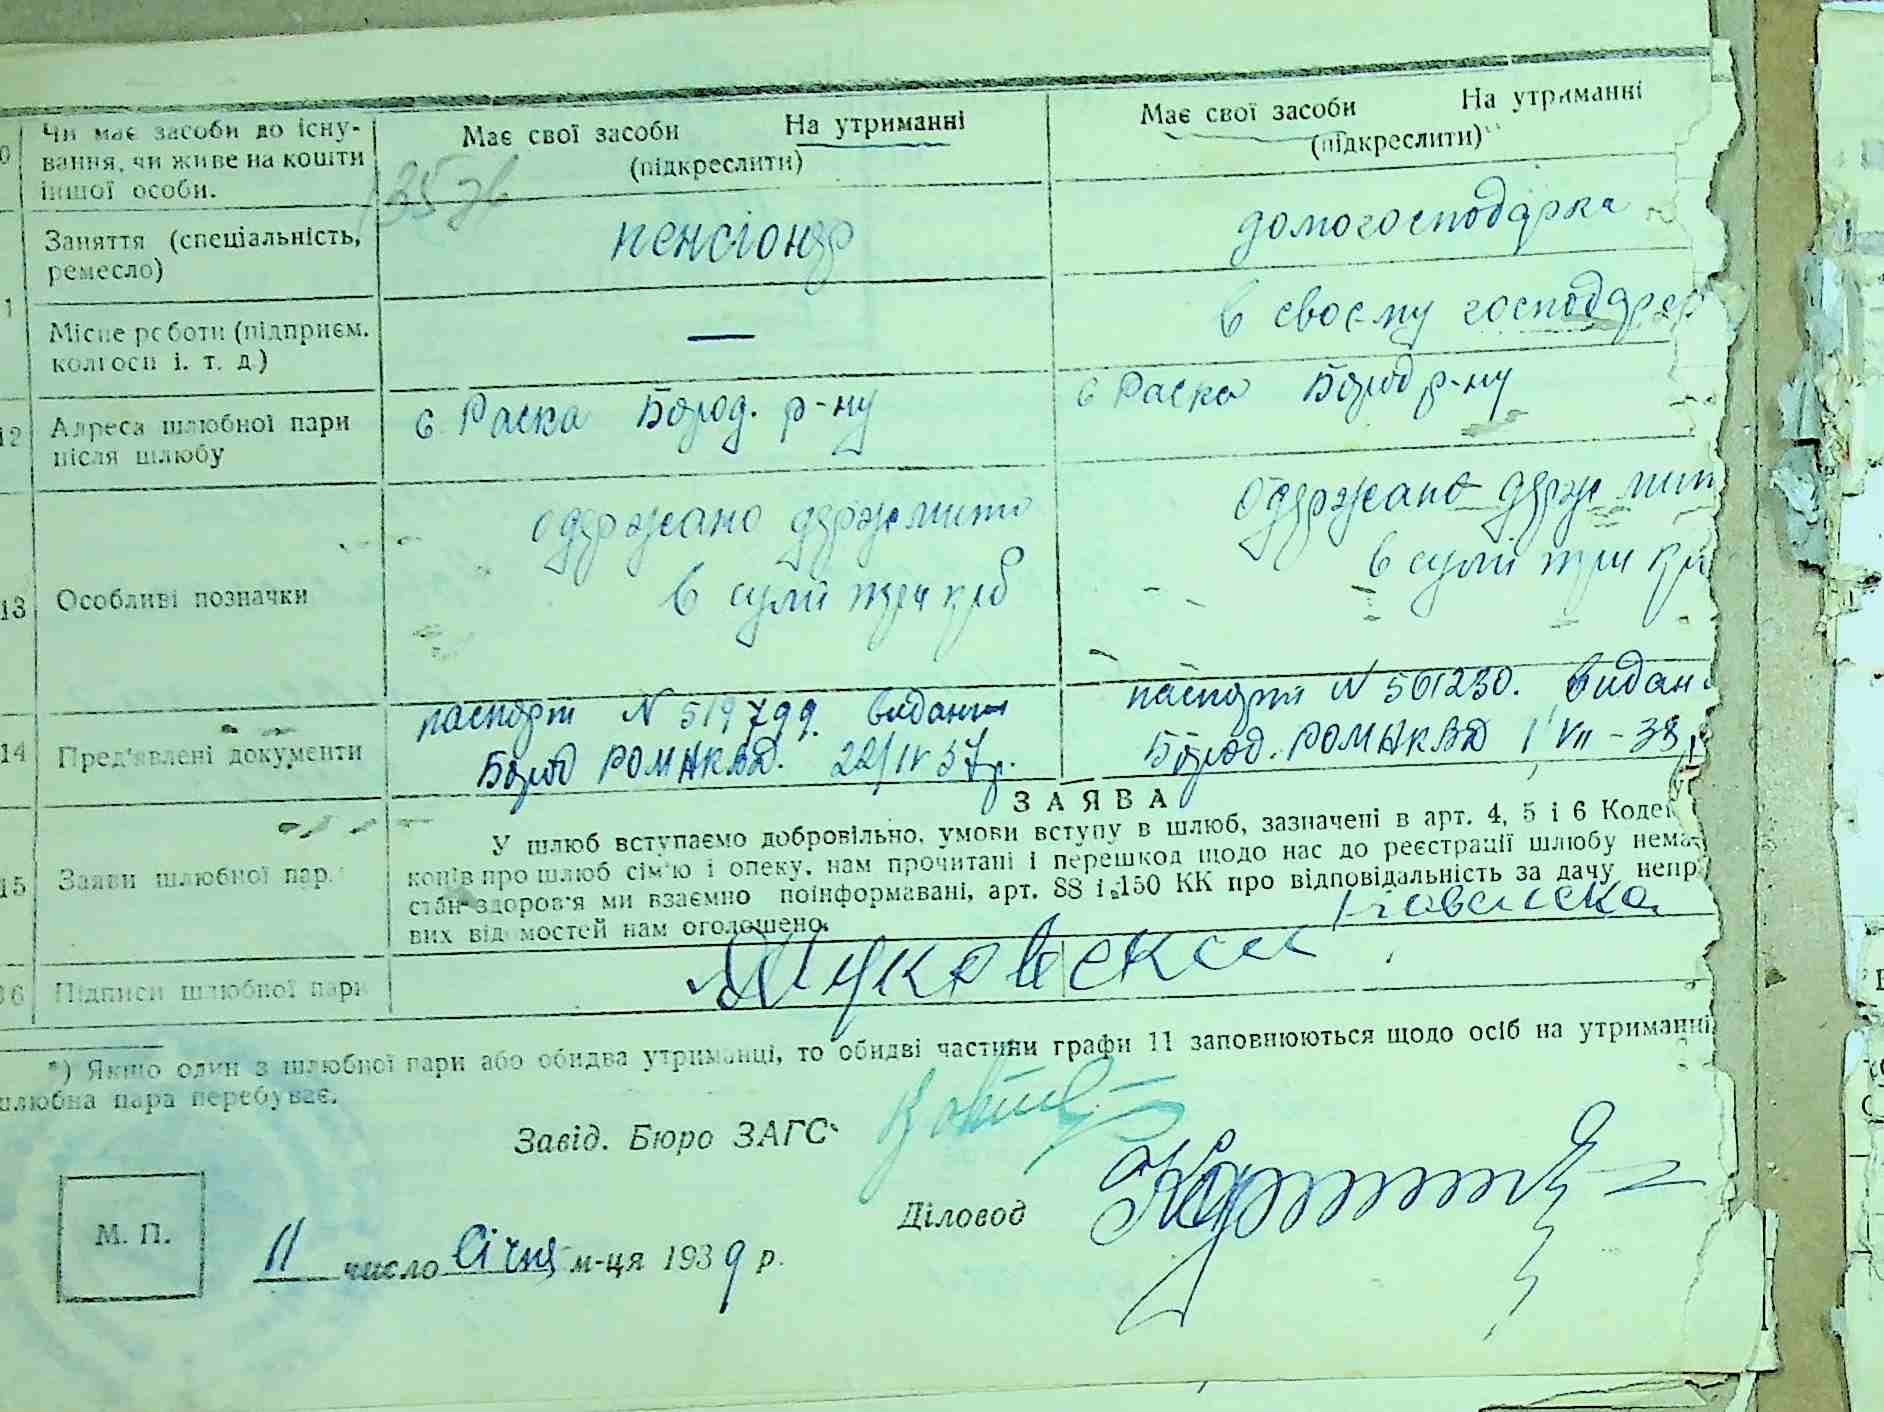 Чи має засоби до існу-
вання, чи живе на кошти
іншої особи.
Має свої засоби На утриманні
(підкреслити)
Має свої засоби На утриманні
(підкреслити)
Заняття (спеціальність,
ремесло)
пенсіонер
домогосподарка
1
Місце роботи (підприєм.
колгосп і. т. д.)
—
в своєму господар
12
Адреса шлюбної пари
після шлюбу
с Раска Бород. р-ну
с Раска Бород р-ну
13
Особливі позначки
одержано держмито
в сумі три крб
одержано держ мит
в сумі три
14
Пред'явлені документи
паспорт N 519799 видани
Бород РОМ НКВД. 22/IV 37р.
паспорт N 561230. видан
Бород. РОМ НКВД 1 VII - 38
15
Заяви шлюбної пар.
ЗАЯВА
У шлюб вступаємо добровільно, умови вступу в шлюб, зазначені в арт. 4, 5 і 6 Кодек
конів про шлюб сім'ю і опеку, нам прочитані і перешкод щодо нас до реєстрації шлюбу нема
стан здоров'я ми взаємно поінформавані, арт. 88 і 150 КК про відповідальність за дачу непр
вих відомостей нам оголошено.
16
Підписи шлюбної пари
*) Якщо один з шлюбної пари або обидва утриманці, то обидві частини графи 11 заповнюються щодо осіб на утриманні
шлюбна пара перебуває.
Завід. Бюро ЗАГС
Діловод
М. П.
11 число Січня м-ця 1939 р.